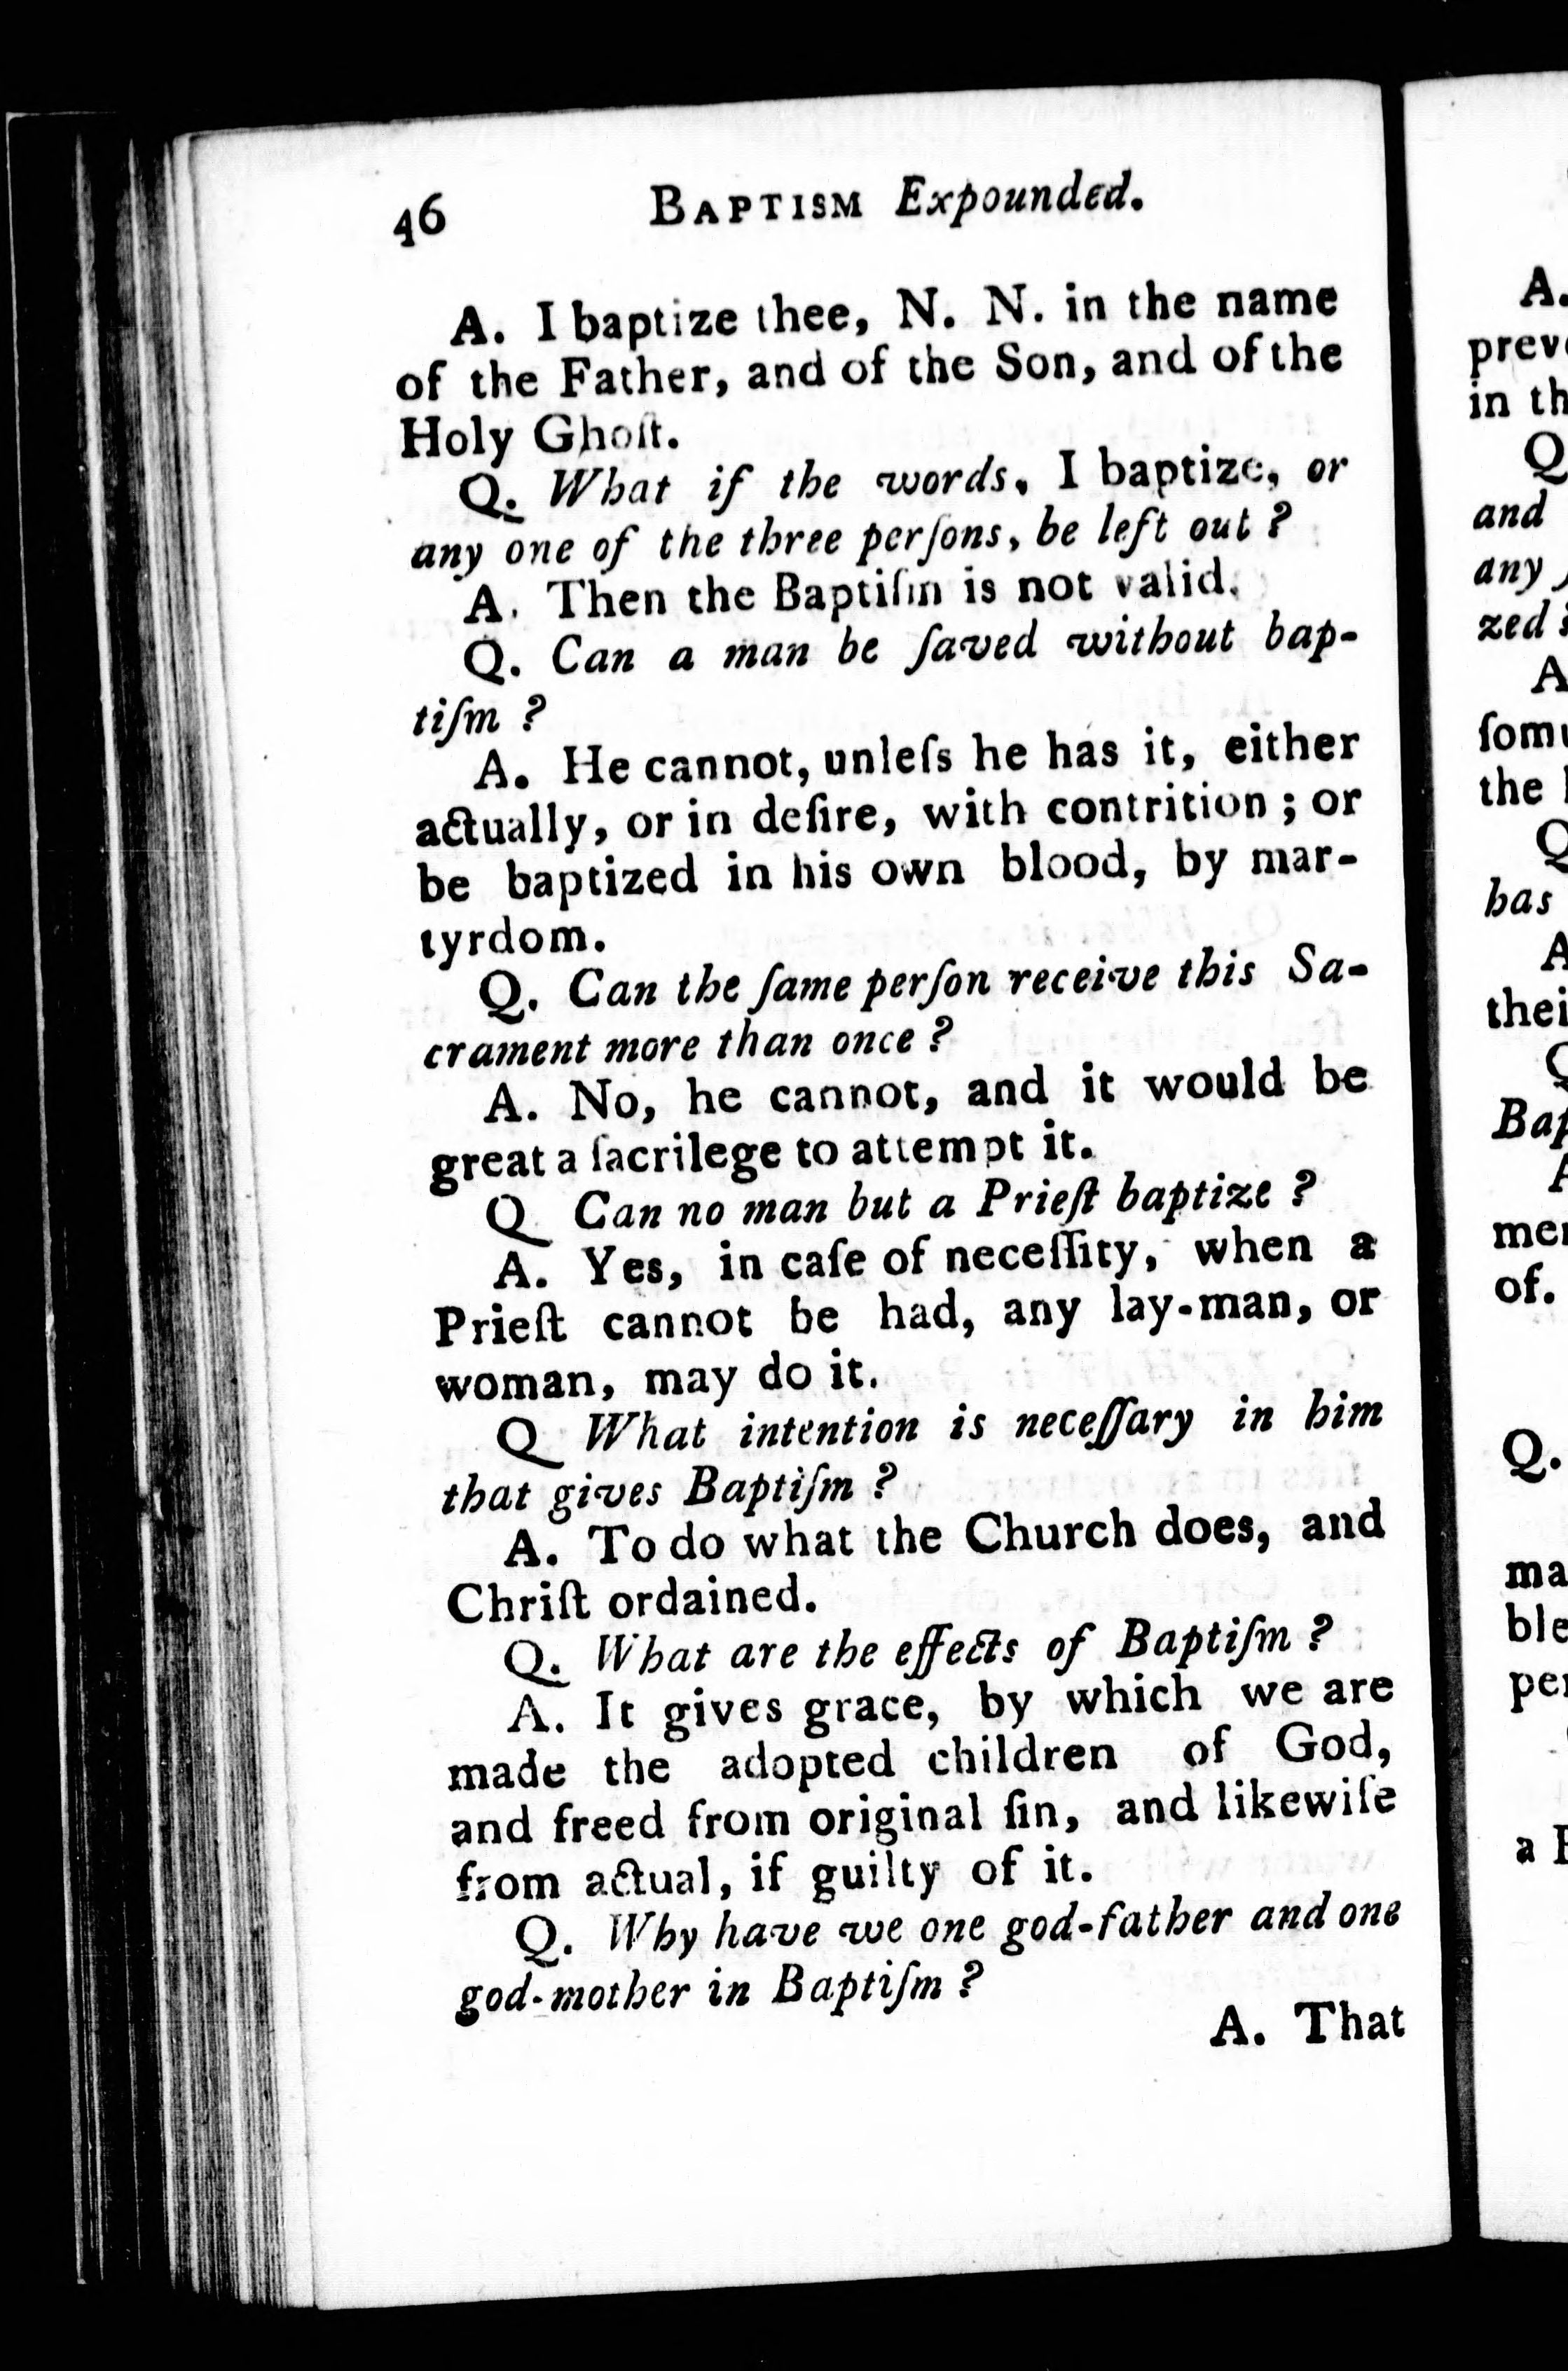 46 BAPTISM Expounded.
A. I baptize thee, N. N. in the name
of the Father, and of the Son, and of the
Holy Ghoſt.
Q. What if the words, I baptize, or
any one of the three perſons, be left out ?
A. Then the Baptiſm is not valid.
Q. Can a man be ſaved without bap-
tiſm ?
A. He cannot, unleſs he has it, either
actually, or in deſire, with contrition ; or
be baptized in his own blood, by mar-
tyrdom.
Q. Can the ſame perſon receive this Sa-
crament more than once ?
A. No, he cannot, and it would be
great a ſacrilege to attempt it.
Q Can no man but a Prieſt baptize ?
A. Yes, in caſe of neceſſity, when a
Prieſt cannot be had, any lay-man, or
woman, may do it.
Q What intention is neceſſary in him
that gives Baptiſm ?
A. To do what the Church does, and
Chriſt ordained.
Q. What are the effects of Baptiſm ?
A. It gives grace, by which we are
made the adopted children of God,
and freed from original ſin, and likewiſe
from actual, if guilty of it.
Q. Why have we one god-father and one
god-mother in Baptiſm ?
A. That
A.
in th
Q
and
any
zed
A
the
Q
has
A
Q.
of.
a